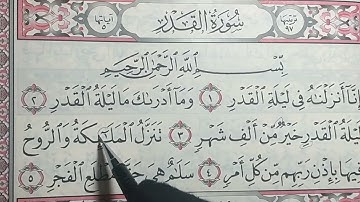 ترتيبها ٩٧ سُورَةُ الْقَدْرِ آياتها ٥
بِسْمِ اللَّهِ الرَّحْمَٰنِ الرَّحِيمِ
إِنَّا أَنزَلْنَاهُ فِي لَيْلَةِ الْقَدْرِ ١ وَمَا أَدْرَاكَ مَا لَيْلَةُ الْقَدْرِ ٢
لَيْلَةُ الْقَدْرِ خَيْرٌ مِّنْ أَلْفِ شَهْرٍ ٣ تَنَزَّلُ الْمَلَائِكَةُ وَالرُّوحُ
فِيهَا بِإِذْنِ رَبِّهِم مِّن كُلِّ أَمْرٍ ٤ سَلَامٌ هِيَ حَتَّىٰ مَطْلَعِ الْفَجْرِ ٥